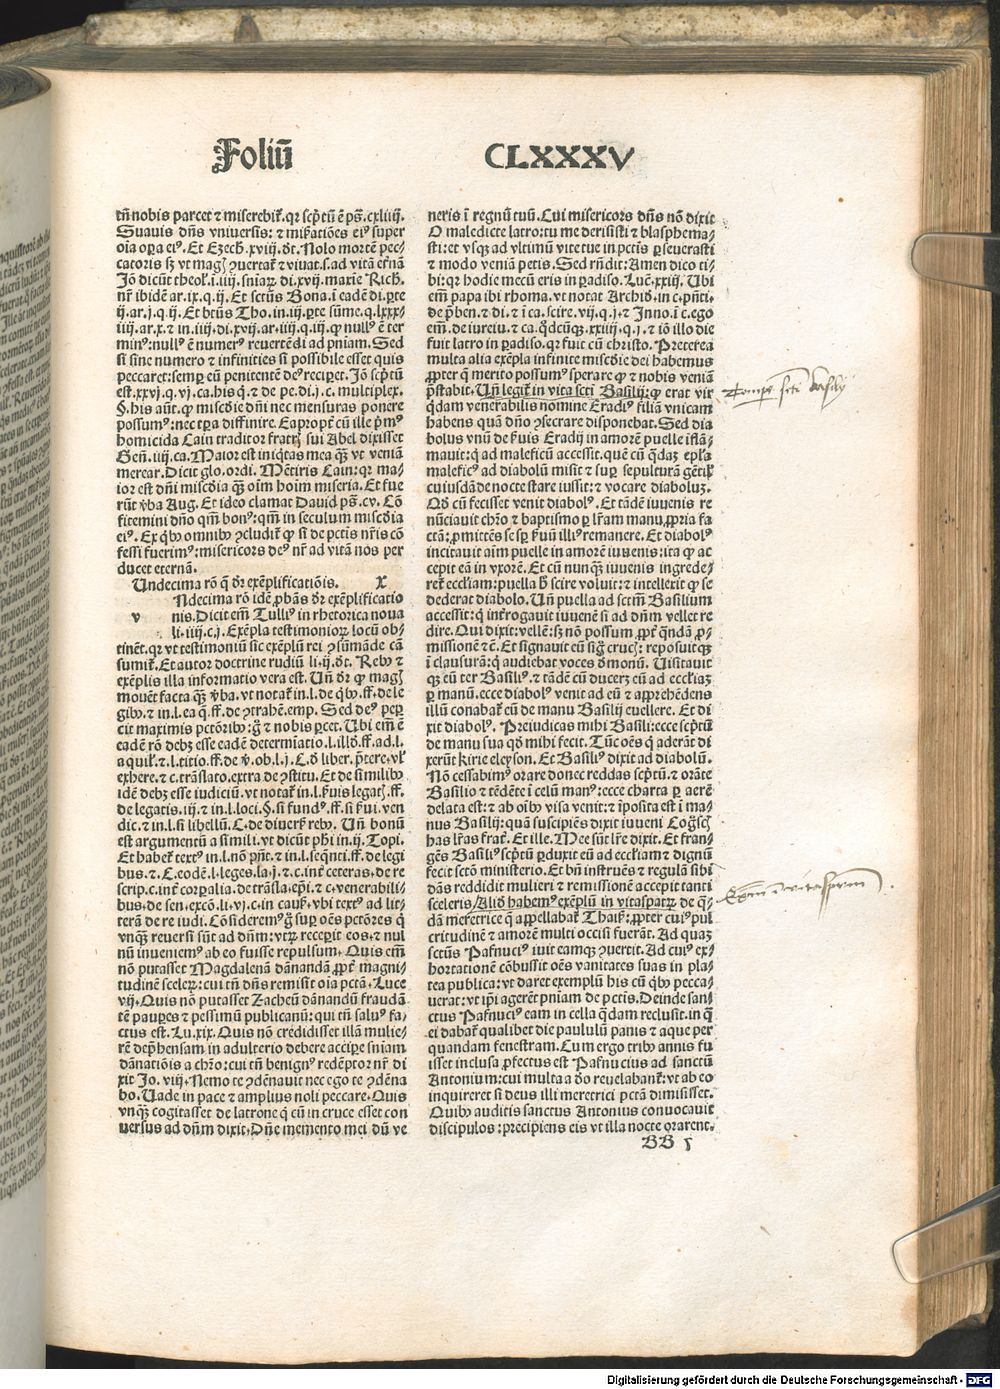 Foliū CLXXXV
tñ nobis parcet ⁊ miserebiť. qꝛ scp̄tū ē pˢ. cxliiij.
Suauis dn̄s vniuersis: ⁊ miẜatiões eiꝰ super
oīa oꝑa eiꝰ. Et Ezech. xviij. dt. Nolo mortē pec⸗
catoris sꝫ vt magꝭ ꝯuertať ⁊ viuat. s. ad vitā eťnā
Jō dicūt theol. l. iiij. sniaꝝ di. xvij. maxīe Rich.
nr̄ ibidē ar. ix. q. ij. Et sctūs Bona. ī eadē di. ꝑte
ij. ar. j. q. ij. Et btūs Tho. in. iij. ꝑte sūme. q. lxxx⸗
iiij. ar. x. ⁊ in. iiij. di. xvij. ar. iiij. q. iij. ꝙ nullꝰ ē ter
minꝰ: nullꝰ ē numerꝰ reuertēdi ad pniam. Sed
si sine numero ⁊ infinities si possibile esset quis
peccaret: semꝑ eū penitentē deꝰ reciꝑet. Jō scp̄tū
est. xxvj. q. vj. ca. his q̄. ⁊ de pe. di. j. c. multiplex.
§. his aūt. ꝙ miscďie dn̄i nec mensuras ponere
possumꝰ: nec tꝑa diffinire. Eapropť cū ille p̄mꝰ
homicida Cain traditor fratrꝭ sui Abel dixisset
Gen̄. iiij. ca. Maior est iniqtas mea qꝫ vt veniā
merear. Dicit glo. ordi. Mētiris Cain: qꝛ ma⸗
ior est dn̄i miscďia qꝫ oīm hoīm miseria. Et fue
rūt ṽba Aug. Et ideo clamat Dauid pˢ. cv. Cō
fitemini dn̄o qm̄ bonꝰ: qm̄ in seculum miscďia
eiꝰ. Ex qbꝰ omnibꝰ ꝯcludiť ꝙ si de pctis nr̄is cō
fessi fuerimꝰ: misericors deꝰ nr̄ ad vitā nos per
ducet eternā.
Undecima rō q̄ dr̄ exēplificatiōis. X
v Ndecima rō idē ꝓbās dr̄ exēplificatio
nis. Dicit em̄ Tulliꝰ in rhetorica noua
li. iiij. c. j. Exēpla testimonioꝝ locū ob⸗
tinēt. qꝛ vt testimoniū sic exēplū rei ꝯsūmāde cā
sumiť. Et autor doctrine rudiū li. ij. dt. Rebꝰ ⁊
exēplis illa informatio vera est. Uñ dr̄ ꝙ magꝭ
mouēt facta qꝫ ṽba. vt notať in. l. de qbꝰ. ff. de le
gibꝰ. ⁊ in. l. ea q̄. ff. de ꝯtrahē. emp. Sed deꝰ peꝑ
cit maximis pctōribꝰ: g̊ ⁊ nobis ꝑcet. Ubi em̄ ē
eadē rō debꝫ esse eadē determīatio. l. illd̄. ff. ad. l.
aquil. ⁊. l. titio. ff. de ṽ. ob. l. j. C. d̄ liber. p̄tere. vl̓
exhere. ⁊ c. trāslato. extra de ꝯstitu. Et de similibꝰ
idē debꝫ esse iudiciū. vt notať in. l. ẜuis legatꝭ. ff.
de legatis. iij. ⁊ in. l. loci. §. si fundꝰ. ff. si ẜui. ven
dic. ⁊ in. l. si libellū. C. de diuerẜ rebꝰ. Uñ bonū
est argumentū a simili. vt dicūt phi in. ij. Topi.
Et habeť textꝰ in. l. nō pn̄t. ⁊ in. l. seqn̄ti. ff. de legi
bus. ⁊. C. eodē. l. leges. la. j. ⁊. c. inť ceteras. de re
scrip. c. inť corꝑalia. de trāsla. ep̄i. ⁊ c. venerabili⸗
bus. de sen. excō. li. vj. c. in cauẜ. vbi textꝰ ad lit⸗
terā de re iudi. Cōsideremꝰ g̊ suꝑ oēs pctōres q̄
vnqꝫ reuersi sūt ad dn̄m: vtꝝ receꝑit eos. ⁊ nul
nū inueniemꝰ ab eo fuisse repulsum. Quis em̄
nō putasset Magdalenā dānandā ꝓpť magni⸗
tudinē sceleꝝ: cui tñ dn̄s remisit oīa pctā. Luce
vij. Quis nō putasset Zacheū dānandū fraudā
tē pauꝑes ⁊ pessimū publicanū: qui tñ saluꝰ fa⸗
ctus est. Lu. xix. Quis nō credidisset illā mulie⸗
rē deꝓhensam in adulterio debere acciꝑe sniam
dānatiōis a chr̄o: cui tñ benignꝰ redēptor nr̄ di
xit Jo. viij. Nemo te ꝯdēnauit nec ego te ꝯdēna
bo. Uade in pace ⁊ amplius noli peccare. Quis
vnqꝫ cogitasset de latrone q̄ cū in cruce esset con
uersus ad dn̄m dixit. Dn̄e memento mei dū ve
neris ī regnū tuū. Cui misericors dn̄s nō dixit
O maledicte latro: tu me derisisti ⁊ blasphema⸗
sti: et vsqꝫ ad vltimū vite tue in pctis ꝑseuerasti
⁊ modo veniā petis. Sed rn̄dit: Amen dico ti⸗
bi: qꝛ hodie mecū eris in ꝑadiso. Luc̄. xxiij. Ubi
em̄ papa ibi rhoma. vt notat Archid̄. in c. pn̄ti.
de p̄ben. ⁊ di. ⁊ ī ca. scire. vij. q. j. ⁊ Inno. ī c. ego
em̄. de iureiu. ⁊ ca. qd̄cūqꝫ. xxiiij. q. j. ⁊ iō illo die
fuit latro in ꝑadiso. qꝛ fuit cū christo. Preterea
multa alia exēpla infinite miscďie dei habemus
ꝓpter q̄ merito possumꝰ sperare ꝙ ⁊ nobis veniā
p̄stabit. Uñ legiť in vita scti Basilij: ꝙ erat vir
qdam venerabilis nomine Eradiꝰ filiā vnicam
habens quā dn̄o ꝯsecrare disponebat. Sed dia
bolus vnū de ẜuis Eradij in amorē puelle iflā⸗
mauit: q̄ ad maleficū accessit. quē cū qdaꝫ epl̄a
maleficꝰ ad diabolū misit ⁊ suꝑ sepulturā gētil̓
cuiusdā de nocte stare iussit: ⁊ vocare diaboluꝫ.
Qd̄ cū fecisset venit diabolꝰ. Et tādē iuuenis re
nūciauit chr̄o ⁊ baptismo ꝑ lr̄am manu ꝓpria fa
ctā: ꝓmittēs se sꝑ ẜuū illiꝰ remanere. Et diabolꝰ
incitauit aīm puelle in amorē iuuenis: ita ꝙ ac
cepit eā in vxorē. Et cū nunqꝫ iuuenis ingrede⸗
reť eccl̄iam: puella ħ scire voluit: ⁊ intellexit ꝙ se
dederat diabolo. Uñ puella ad sctm̄ Basilium
accessit: q̄ inťrogauit iuuenē si ad dn̄m vellet re
dire. Qui dixit: vellē: sꝫ nō possum ꝓpť qn̄dā ꝓ⸗
missionē ⁊ c̄. Et signauit eū sig̊ crucꝭ: reposuitqꝫ
ī clausurā: q̄ audiebat voces dꝭmonū. Uisitauit
qꝫ eū ter Basiliꝰ. ⁊ tādē cū duceret eū ad eccl̄iaꝫ
ꝑ manū. ecce diabolꝰ venit ad eū ⁊ apprehēdens
illū conabať eū de manu Basilij euellere. Et di
xit diabolꝰ. Preiudicas mihi Basili: ecce scp̄tū
de manu sua qd̄ mihi fecit. Tūc oēs q̄ aderāt di
xerūt kirie eleyson. Et Basiliꝰ dixit ad diabolū.
Nō cessabimꝰ orare donec reddas scp̄tū. ⁊ orāte
Basilio ⁊ tēdēte ī celū manꝰ: ecce charta ꝑ aerē
delata est: ⁊ ab oībꝰ visa venit: ⁊ īposita est ī ma⸗
nus Basilij: quā suscipiēs dixit iuueni Cog̊scꝭ
has lr̄as frať. Et ille. Mee sūt lr̄e dixit. Et fran⸗
gēs Basiliꝰ scp̄tū ꝑduxit eū ad eccl̄iam ⁊ dignū
fecit sctō ministerio. Et bn̄ instruēs ⁊ regulā sibi
dās reddidit mulieri ⁊ remissionē accepit tanti
sceleris. Alid̄ habemꝰ exēplū in vitaspatꝝ de q⸗
dā meretrice q̄ appellabať Thais: ꝓpter cuiꝰ pul
critudinē ⁊ amorē multi occisi fuerāt. Ad quaꝫ
sctūs Pafnuciꝰ iuit eamqꝫ ꝯuertit. Ad cuiꝰ ex⸗
hortationē cōbussit oēs vanitates suas in pla⸗
tea publica: vt daret exemplū his cū qbꝰ pecca⸗
uerat: vt ip̄i agerēt pniam de pctis. Deinde san⸗
ctus Pafnuciꝰ eam in cella qdam reclusit. in q̄
ei dabať qualibet die paululū panis ⁊ aque per
quandam fenestram. Cum ergo tribꝰ annis fu
isset inclusa ꝓfectus est Pafnucius ad sanctū
Antonium: cui multa a dō reuelabanť: vt ab eo
inquireret si deus illi meretrici pctā dimisisset.
Quibꝰ auditis sanctus Antonius conuocauit
discipulos: precipiens eis vt illa nocte orarent.
BB 1
Exm̄ in vitaspr̄um
Digitalisierung gefördert durch die Deutsche Forschungsgemeinschaft - DFG